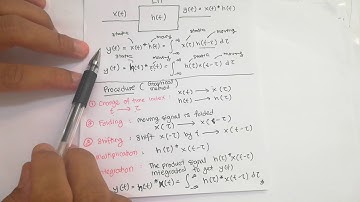 LTI
x(t) h(t) y(t) = x(t)*h(t)
static moving static moving
y(t) = x(t)*h(t) = ∫ x(τ) h(t-τ) dτ
static moving static moving
y(t) = h(t)*x(t) = ∫ h(τ) x(t-τ) dτ
Procedure: (Graphical method)
① Change of time index: x(t) → x(τ)
t → τ h(t) → h(τ)
② Folding: moving signal is folded
x(τ) → x(-τ)
③ Shifting: shift x(-τ) by t → x(t-τ)
Multiplication: h(τ)*x(t-τ)
Integration: The product signal h(τ)*x(t-τ)
integrated to get y(t)
y(t) = h(t)*x(t) = ∫ h(τ)*x(t-τ) dτ